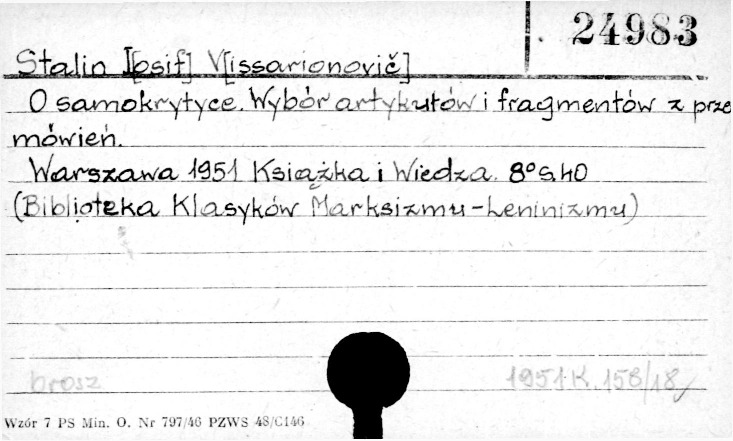 24983
Stalin I[osif] V[issarionovič]
O samokrytyce. Wybór artykułów i fragmentów z prze
mówień.
Warszawa 1951 Książka i Wiedza. 8° s. 40
(Biblioteka Klasyków Marksizmu-Leninizmu)
brosz
1951 K. 158/18
Wzór 7 PS Min. O. Nr 797/46 PZWS 48/C146